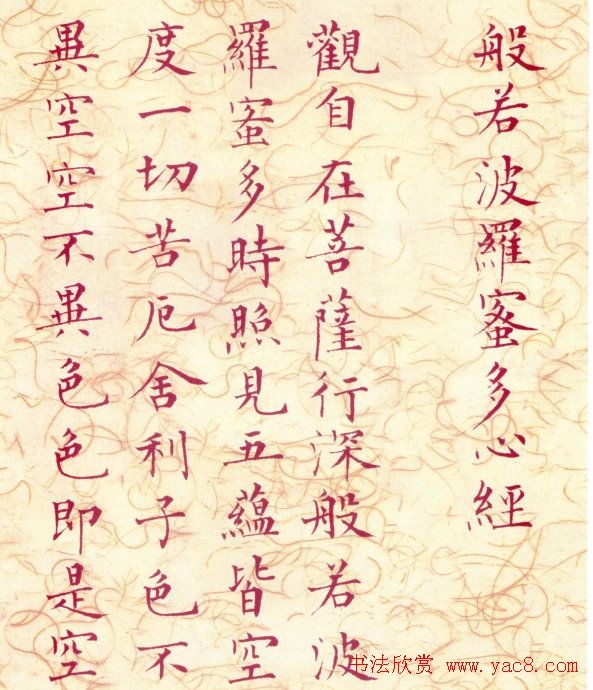 般若波羅蜜多心經
觀自在菩薩行深般若波
羅蜜多時照見五蘊皆空
度一切苦厄舍利子色不
異空空不異色色即是空
书法欣赏 www.yac8.com